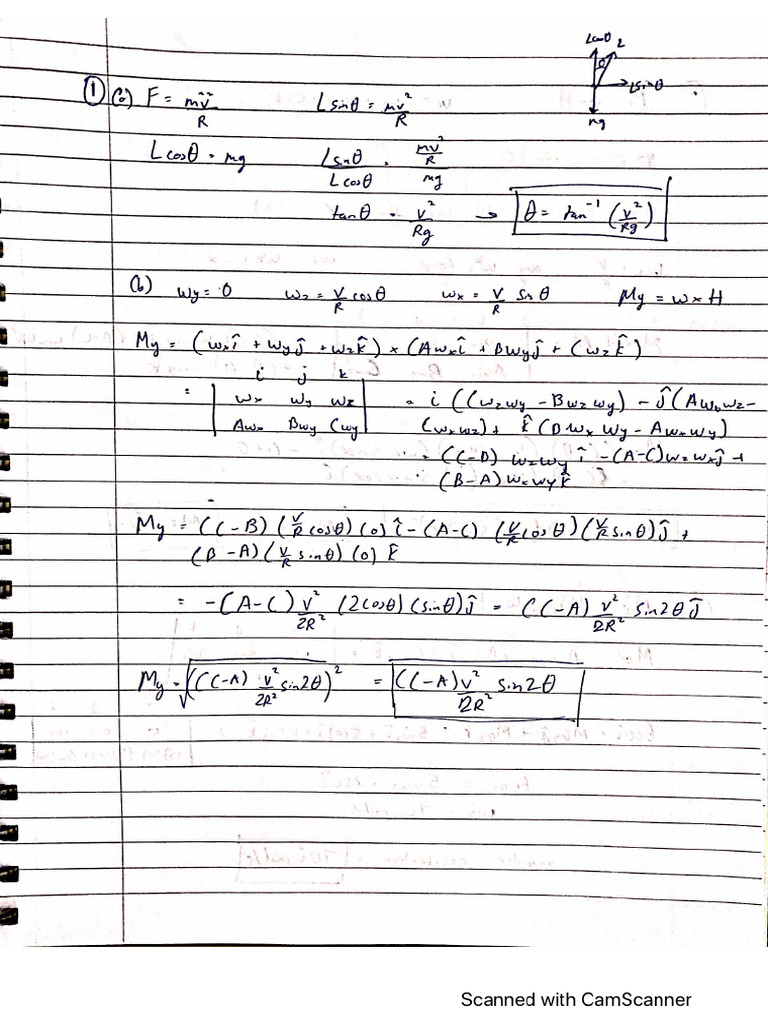 Lcosθ L
θ
Lsinθ
mg
① (a) F = mv²/R    L sinθ = mv²/R
L cosθ = mg    Lsinθ/Lcosθ = (mv²/R)/mg
tanθ = v²/Rg → θ = tan⁻¹ (v²/Rg)
(b) wy = 0    wz = V/R cosθ    wx = V/R sinθ    My = w × H
My = (wxî + wyĵ + wzk̂) × (Awxî + Bwyĵ + Cwzk̂)
i j k
= | wx wy wz | = i (Cwzwy - Bwzwy) - ĵ(Awxwz -
| Awx Bwy Cwy | Cwxwz) + k̂(Bwxwy - Awxwy)
= (C-B) wzwy î - (A-C)wzwxĵ +
(B-A)wxwyk̂
My = (C-B) (V/R cosθ) (0) î - (A-C) (V/R cosθ) (V/R sinθ)ĵ +
(B-A)(V/R sinθ) (0) k̂
= -(A-C) V²/2R² (2cosθ) (sinθ)ĵ = (C-A) V²/2R² sin2θ ĵ
My = √((C-A) V²/2R² sin2θ)² = (C-A)V²/2R² sin2θ
Scanned with CamScanner